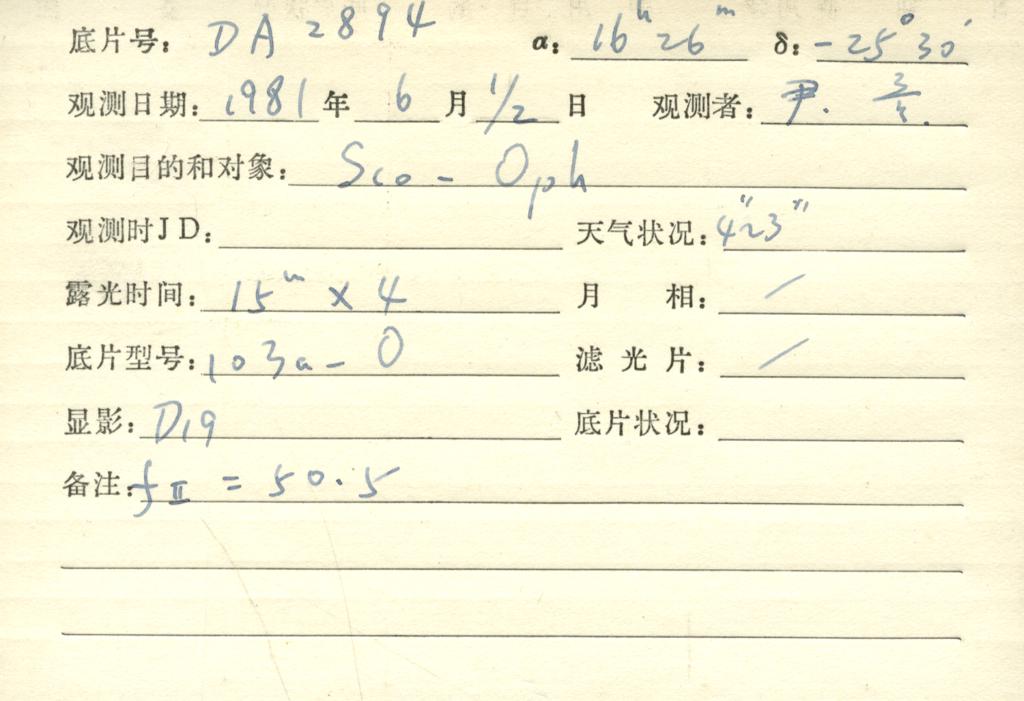 底片号: DA 2894 α: 16ʰ26ᵐ δ: -25°30′
观测日期: 1981年 6月 1/2日 观测者: 尹.
观测目的和对象: Sco - Oph
观测时JD: 天气状况: 4"~3"
露光时间: 15ᵐ × 4 月 相: /
底片型号: 103a-O 滤光片: /
显影: D19 底片状况:
备注: fⅡ = 50.5